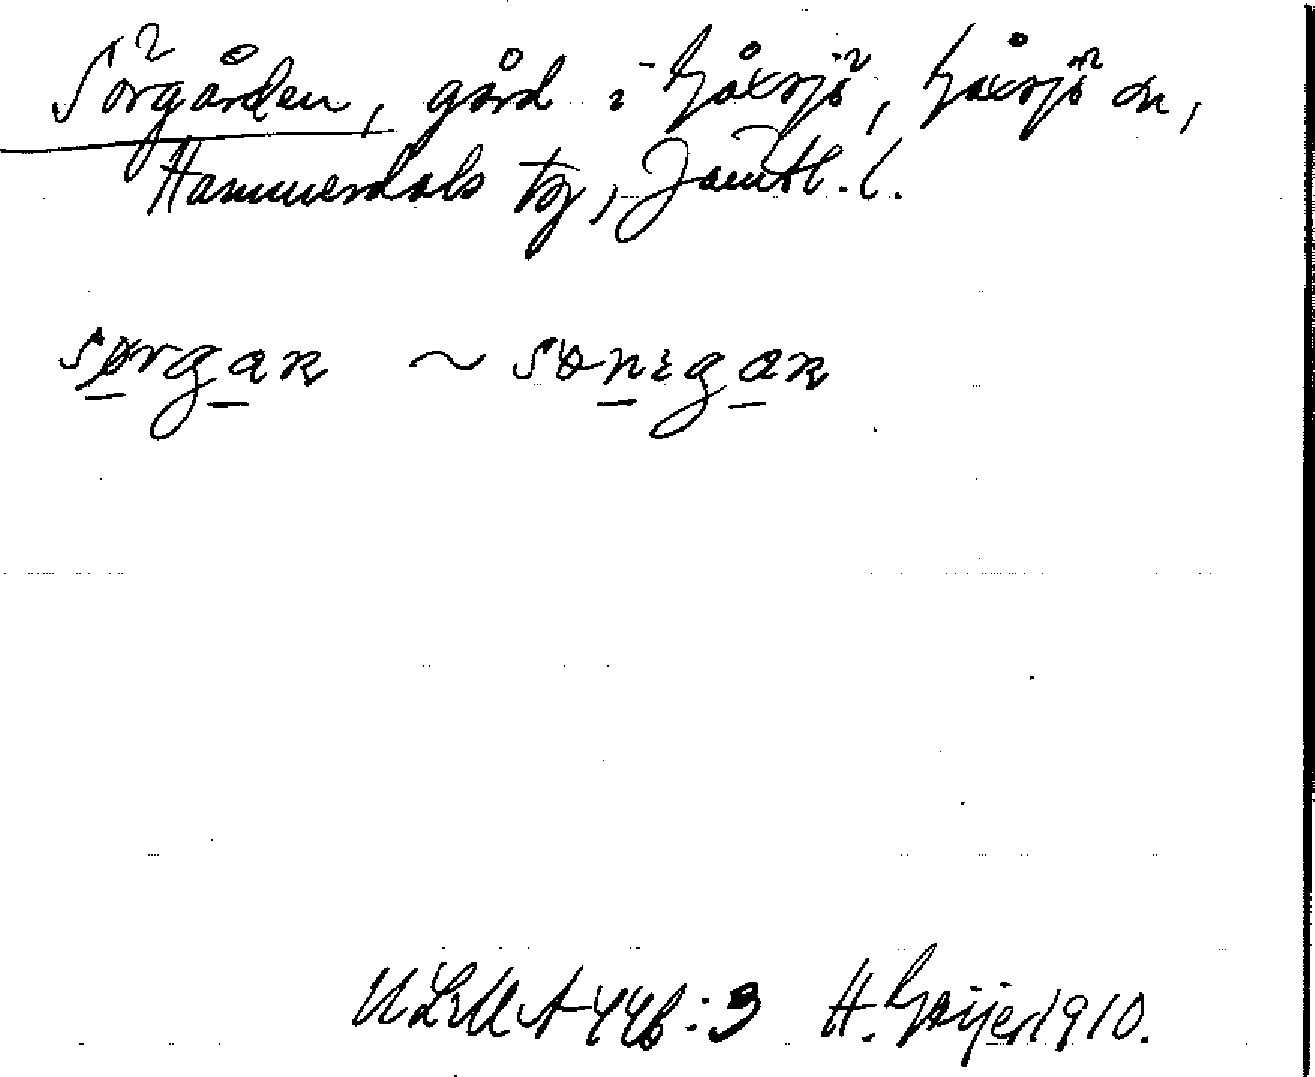 Sörgården, gård i Gåxsjö, Gåxsjö sn,
Hammerdals tg, Jämtl. l.
sørgaɴ ~
ULMA 446:3 H. Geijer 1910.